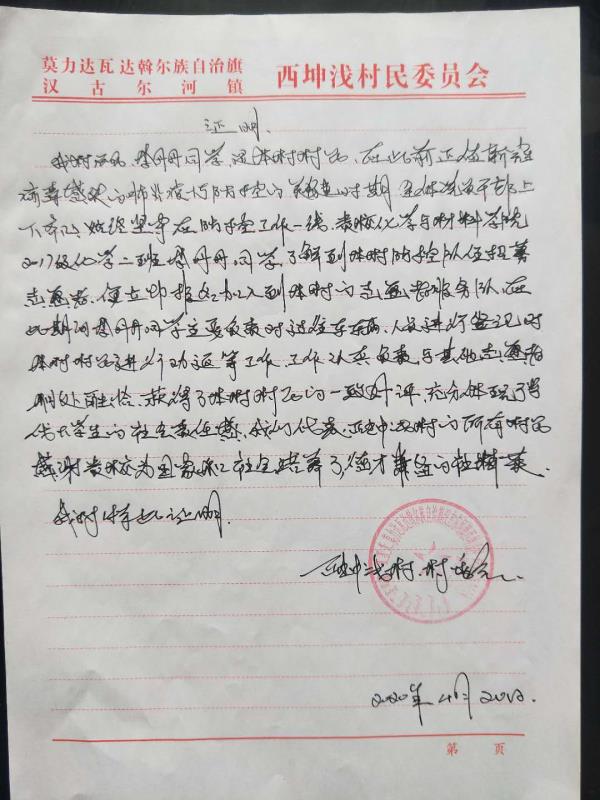 莫力达瓦达斡尔族自治旗
汉古尔河镇
西坤浅村民委员会
证明
我村 同学,是本村村民,在此前正值新冠
病毒感染的肺炎疫情防控的关键时期,全体党员干部上
下齐心,始终坚守在防控工作一线,贵校化学与材料学院
2017级化学二班 同学了解到本村防控队伍招募
志愿者,便立即报名加入到本村的志愿者服务队,在
此期间 同学主要负责对过往车辆、人员进行登记,对
本村村民进行 等工作,工作认真负责,与其他志愿者
相处融洽,获得了本村村民的一致好评,充分体现了当
代大学生的社会责任感,我们代表西坤浅村的所有村民
感谢贵校为国家和社会培养了德才兼备的社
我村特此证明.
西坤浅村 村委会
2020年4月20日.
第 页